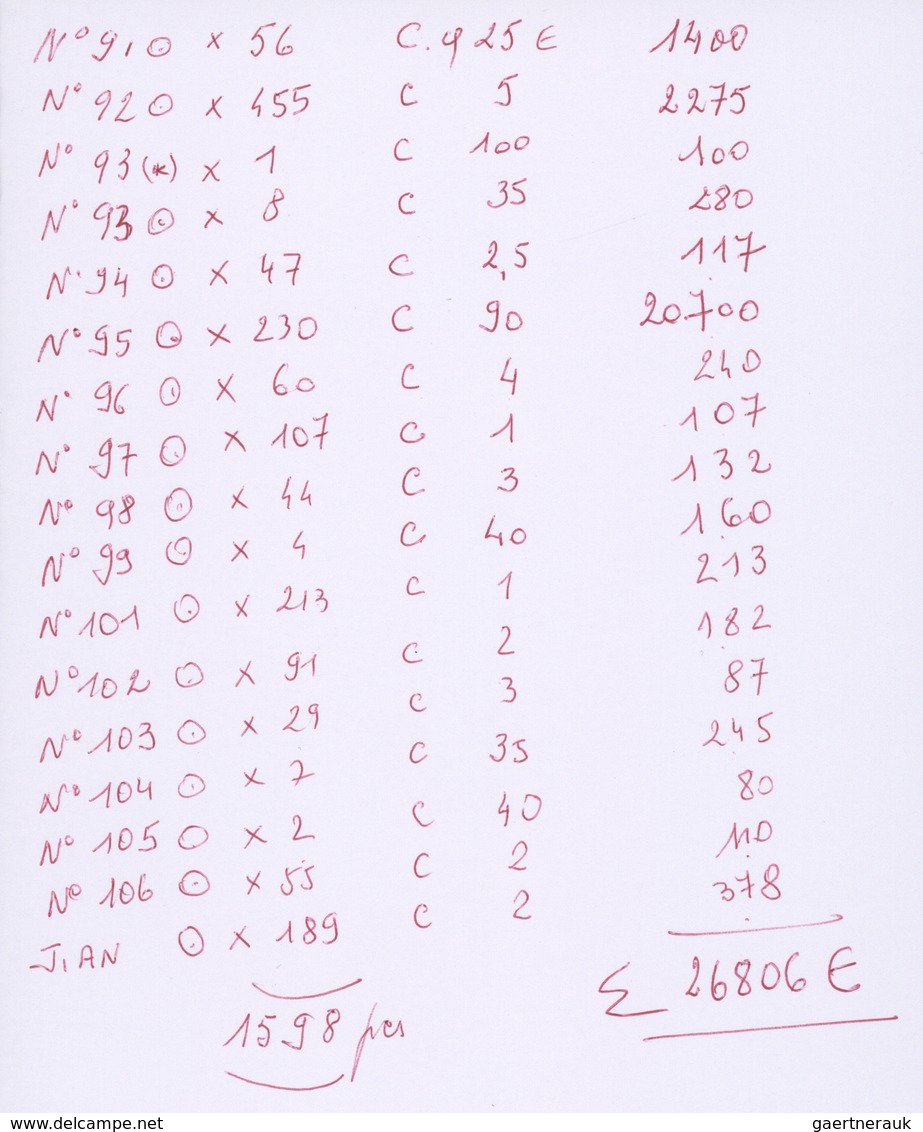 N° 91 ⊙ x 56 C. φ 25 € 1400
N° 92 ⊙ x 455 C 5 2275
N° 93 (*) x 1 C 100 100
N° 93 ⊙ x 8 C 35 280
N° 94 ⊙ x 47 C 2,5 117
N° 95 ⊙ x 230 C 90 20.700
N° 96 ⊙ x 60 C 4 240
N° 97 ⊙ x 107 C 1 107
N° 98 ⊙ x 44 C 3 132
N° 99 ⊙ x 4 C 40 160
N° 101 ⊙ x 213 C 1 213
N° 102 ⊙ x 91 C 2 182
N° 103 ⊙ x 29 C 3 87
N° 104 ⊙ x 7 C 35 245
N° 105 ⊙ x 2 C 40 80
N° 106 ⊙ x 55 C 2 110
J.AN ⊙ x 189 C 2 378
1598 pces
Σ 26806 €
www.delcampe.net gaertnerauk